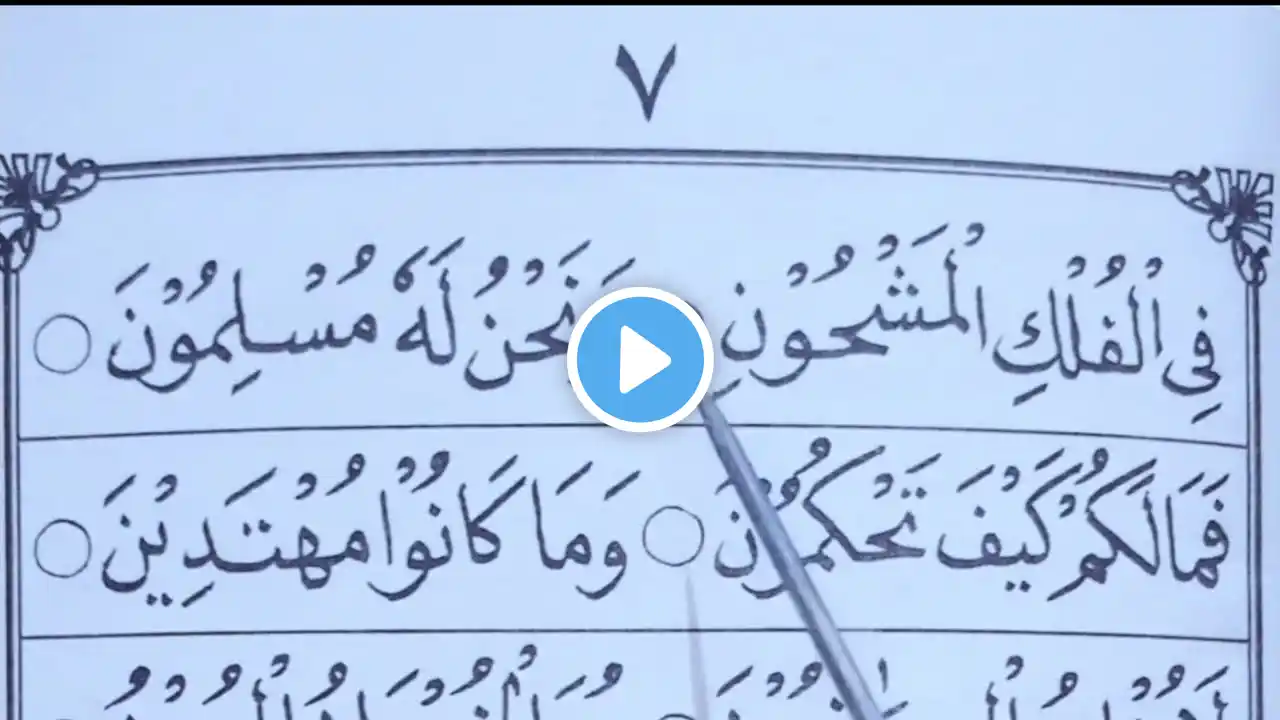 ٧
فِي الْفُلْكِ الْمَشْحُوْنِ وَنَحْنُ لَهٗ مُسْلِمُوْنَ ○
فَمَالَكُمْ كَيْفَ تَحْكُمُوْنَ ○ وَمَا كَانُوْا مُهْتَدِيْنَ ○